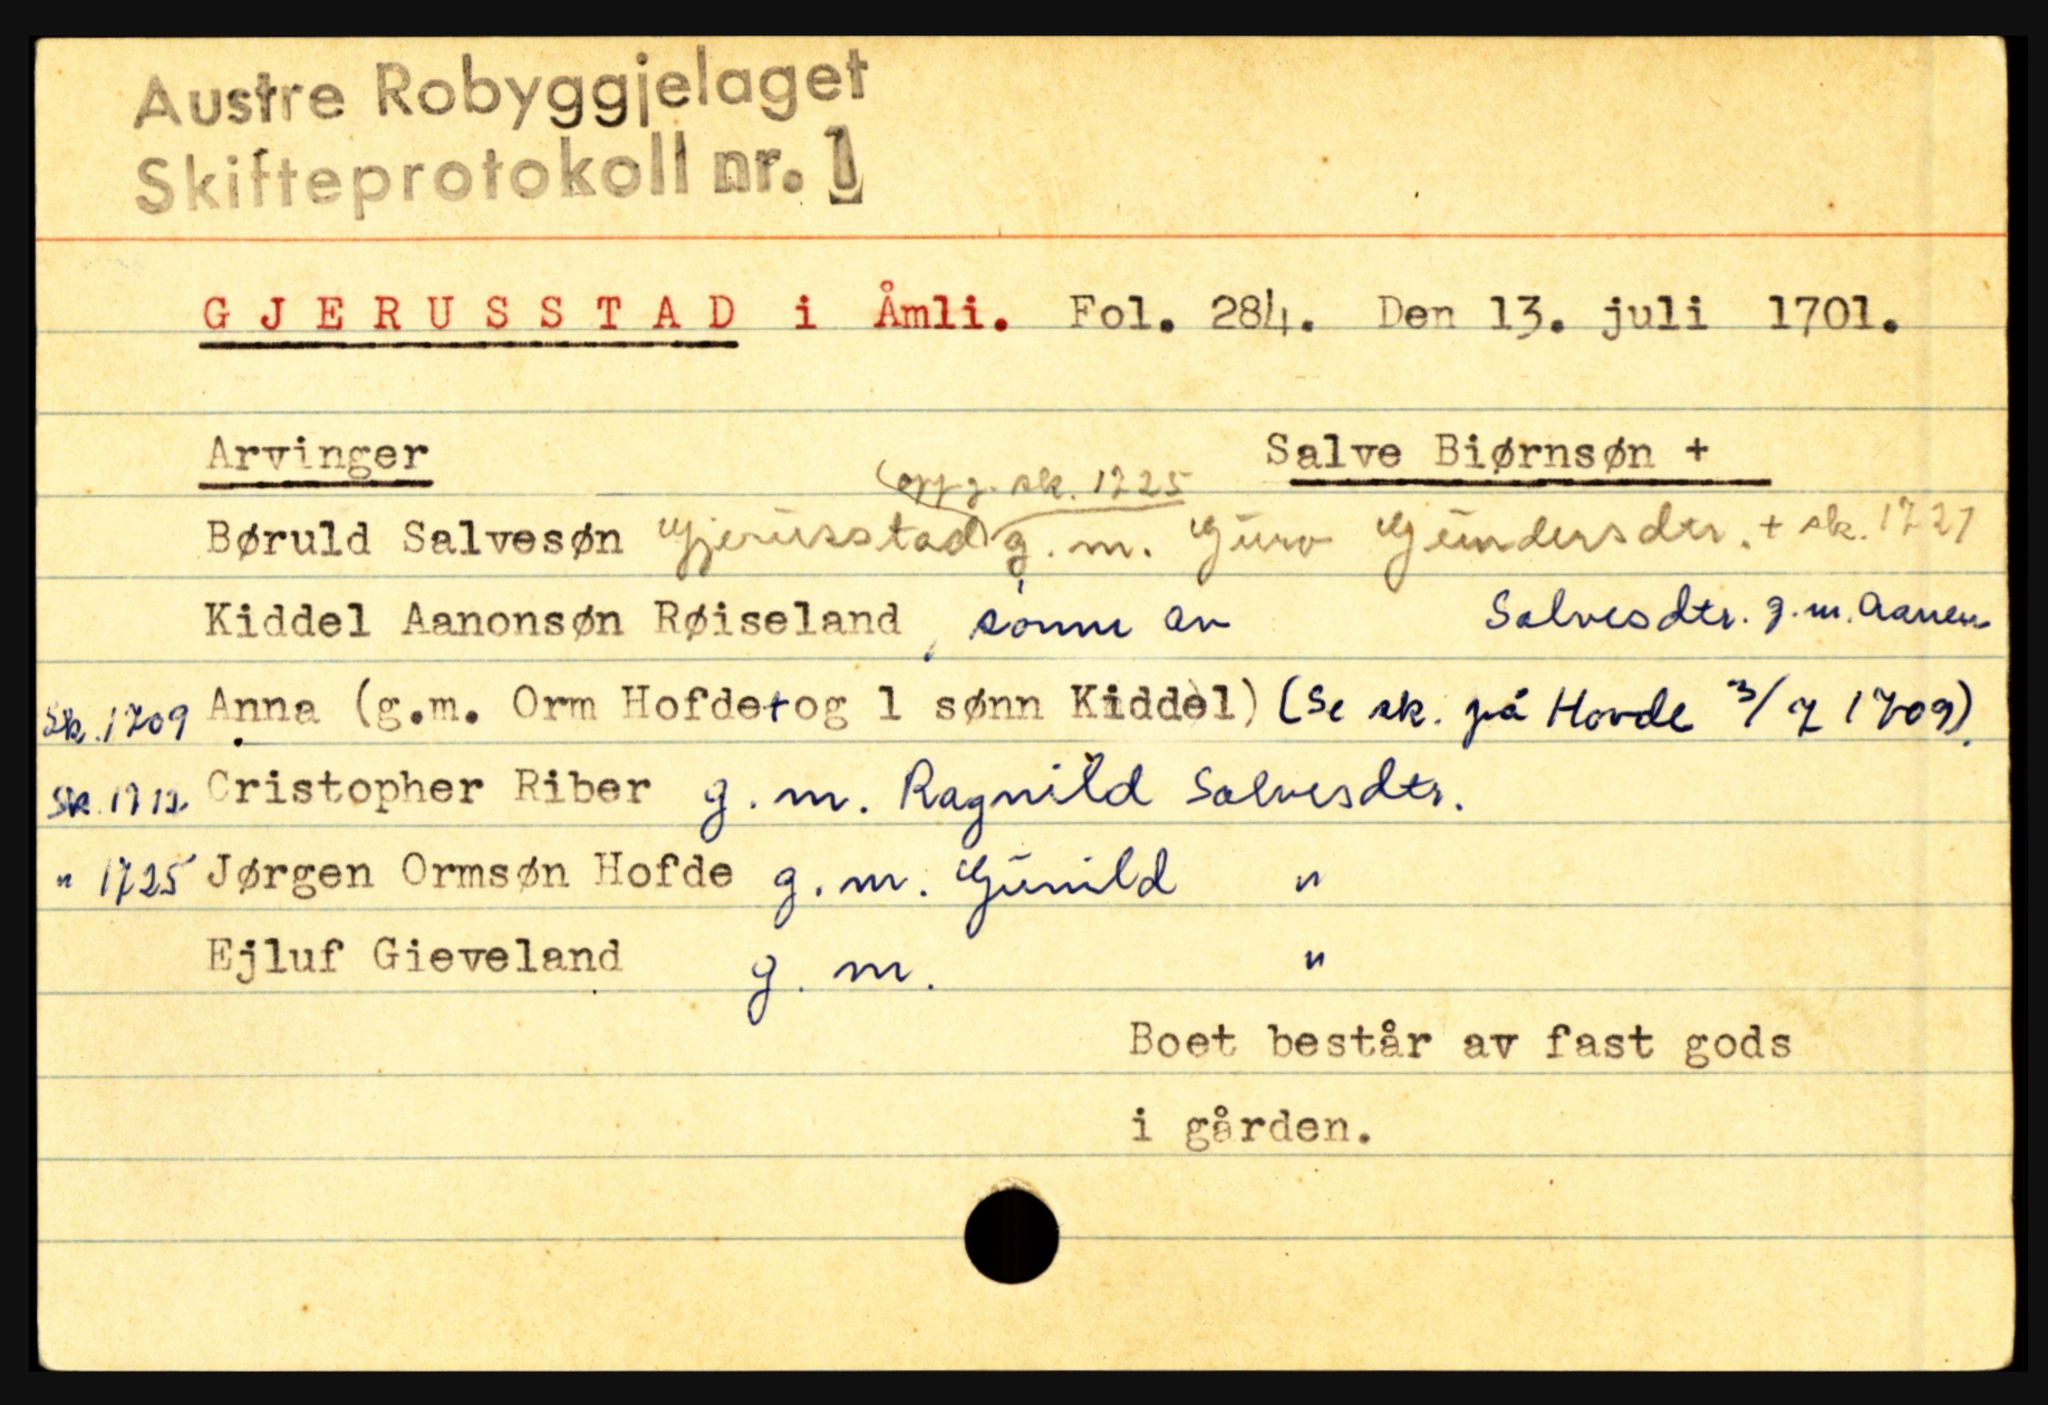 Austre Robyggjelaget
Skifteprotokoll nr. 1
GJERUSSTAD i Åmli. Fol. 284. Den 13. juli 1701.
Arvinger Salve Biørnsøn +
oppg. sk. 1725
Børuld Salvesøn Gjerusstad g.m. Guro Gundersdtr. + sk. 1721
Kiddel Aanonsøn Røiseland, sønn av Salvesdtr. g.m. Aanen
Sk. 1709 Anna (g.m. Orm Hofde + og 1 sønn Kiddel) (Se sk. på Hovde 3/7 1709).
Sk. 1712 Cristopher Riber g.m. Ragnild Salvesdtr.
" 1725 Jørgen Ormsøn Hofde g.m. Gunild "
Ejluf Gieveland g.m. "
Boet består av fast gods
i gården.